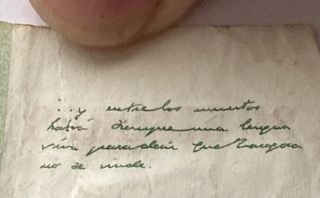 ...y entre los muertos
habrá siempre una lengua
viva para decir que Zaragoza
no se rinde.